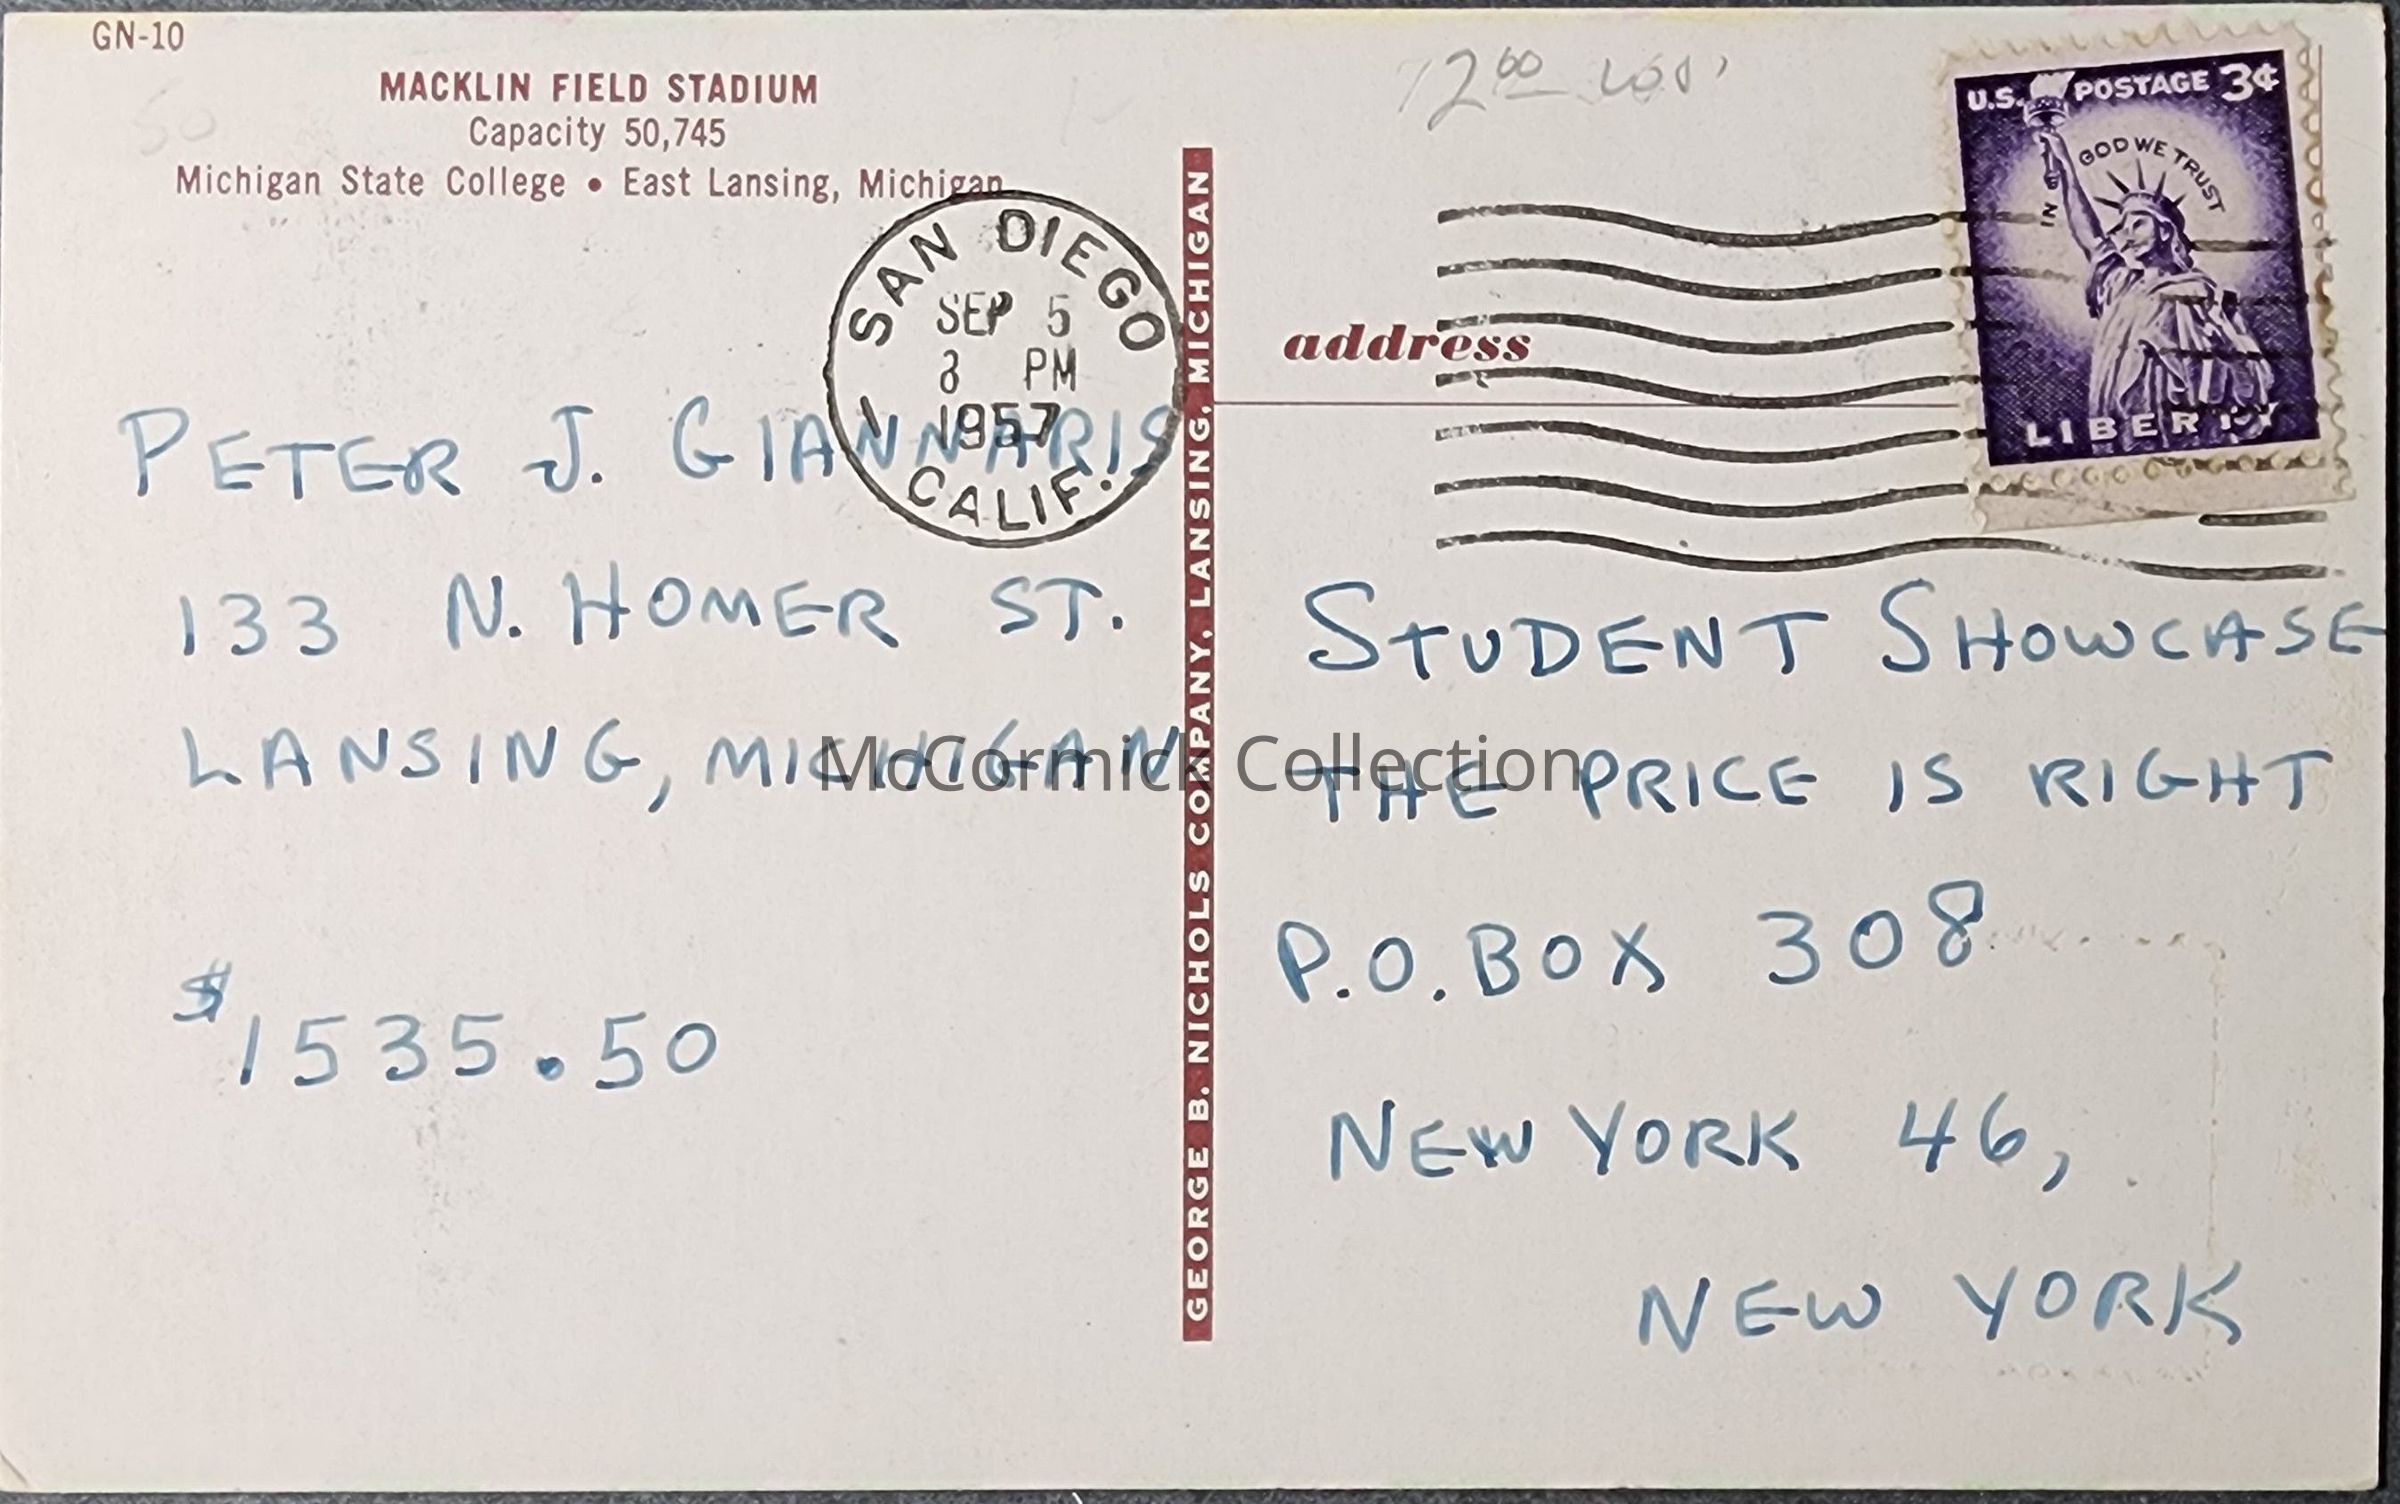 GN-10
MACKLIN FIELD STADIUM
Capacity 50,745
Michigan State College • East Lansing, Michigan
SAN DIEGO
SEP 5
PM
1957
1
CALIF.
PETER J. GIANNARIS
133 N. HOMER ST.
LANSING, MICHIGAN
$1535.50
GEORGE B. NICHOLS COMPANY, LANSING, MICHIGAN
U.S. POSTAGE 3¢
IN GOD WE TRUST
LIBERTY
address
STUDENT SHOWCASE
THE PRICE IS RIGHT
P.O. BOX 308
NEW YORK 46,
NEW YORK
McCormick Collection